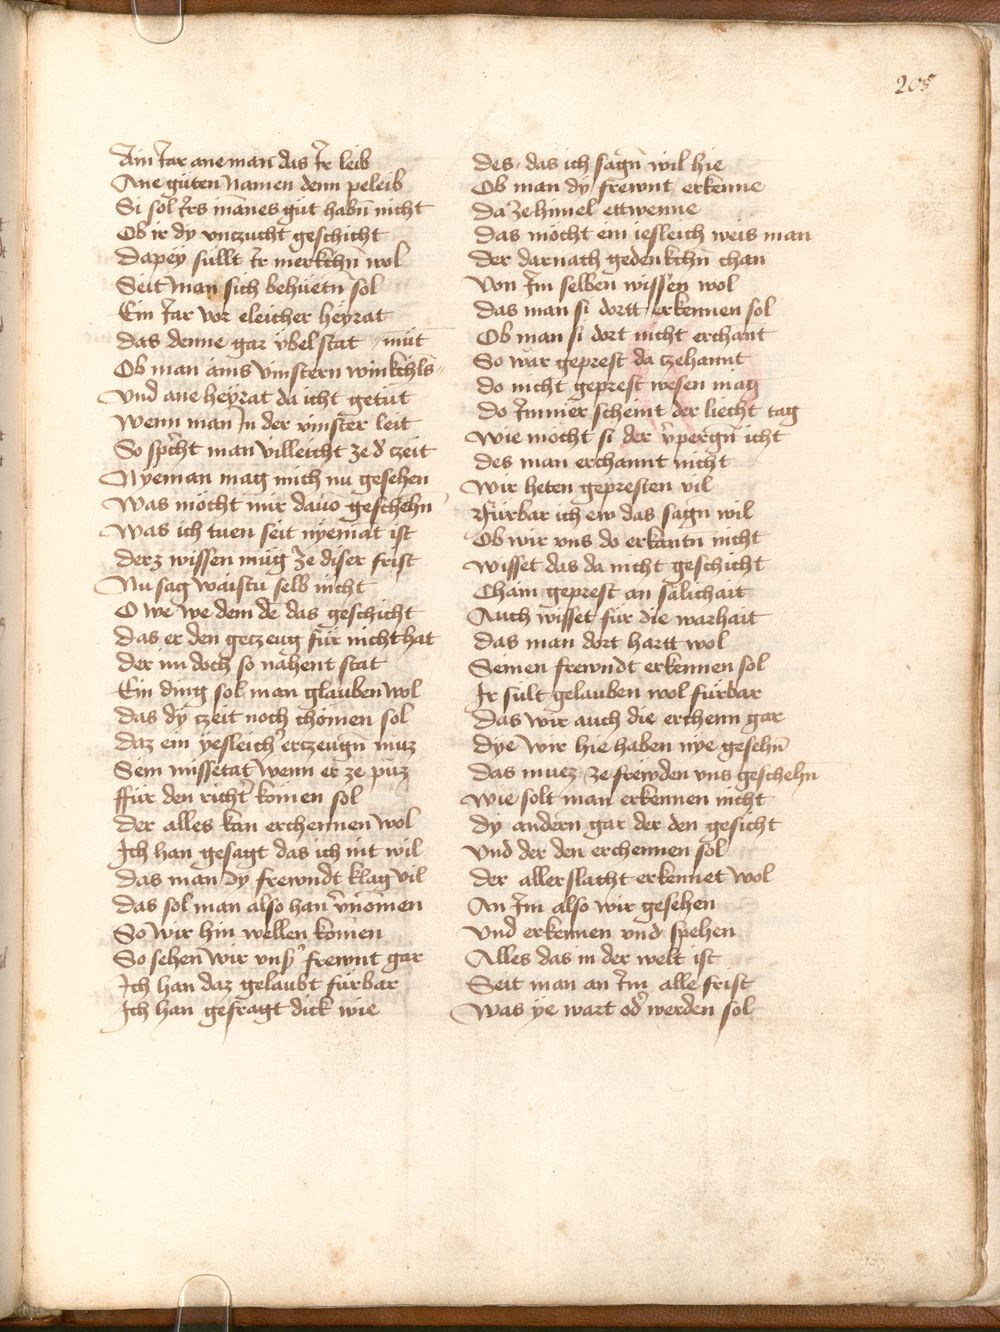 205
Ain Jar ane man das Jr leib
Ane guten Namen denn peleib
Si sol Jrs mānes gut habn̄ nicht
Ob ir dy vnczucht geschicht
Dapey süllt Jr merkchn̄ wol
Seit man sich behüetn̄ sol
Ein Jar vor eleicher heyrat
Das denne gar ÿbel stat mŭt
Ob man ains vinstern winkchls
Vnd ane heÿrat da icht getŭt
Wenn man Jn der vinster leit
So spr̄cht man villeicht ze d' czeit
Nyeman mag mich nu gesehen
Was möcht mir dauō geschehn̄
Was ich tuen seit nyemāt ist
Derz wissen müg ze diser frist
Nu sag waistu selb nicht
O we we dem dē das geschicht
Das er den geczeug für nicht hat
Der im doch so nahent stat
Ein ding sol man glauben wol
Das dÿ czeit noch chömen sol
Daz ein yesleich' erczeugn̄ muz
Sein missetat wenn er ze puz
Für den richt' komen sol
Der alles kan erchennen wol
Ich han gesagt das ich nit wil
Das man dy frewndt klag vil
Das sol man also han v̄nomen
So wir hin wellen komen
So sehen wir vns' frewnt gar
Ich han daz gelaubt fürbar
Ich han gefragt dick wie
Des das ich sagn̄ wil hie
Ob man dy frewnt erkenne
Da ze himel ettwenne
Das möcht ein iesleich weis man
Der darnach gedenkchn̄ chan
Von Jm selben wissen wol
Das man si dortt erkennen sol
Ob man si dort nicht erchant
So wär geprest da czehannt
Do nicht geprest wesen mag
Do Jmmer scheint der liecht tag
Wie möcht si der v̄pergn̄ icht
Des man erchannt nicht
Wir heten gepresten vil
Fürbar ich ew das sagn wil
Ob wir vns do erkantn̄ nicht
Wisset das da nicht geschicht
Chain geprest an sälichait
Auch wisset für die warhait
Das man dort hartt wol
Seinen frewndt erkennen sol
Ir sült gelauben wol fürbar
Das wir auch die erchenn gar
Dÿe wir hie haben nÿe gesehn̄
Das muez ze frewden vns geschehn̄
Wie solt man erkennen nicht
Dÿ andern gar der den gesicht
Vnd der den erchennen sol
Der aller slacht erkennet wol
An Jm also wir gesehen
Vnd erkennen vnd spehen
Alles das in der welt ist
Seit man an Jm alle frist
Was ÿe wart od' werden sol